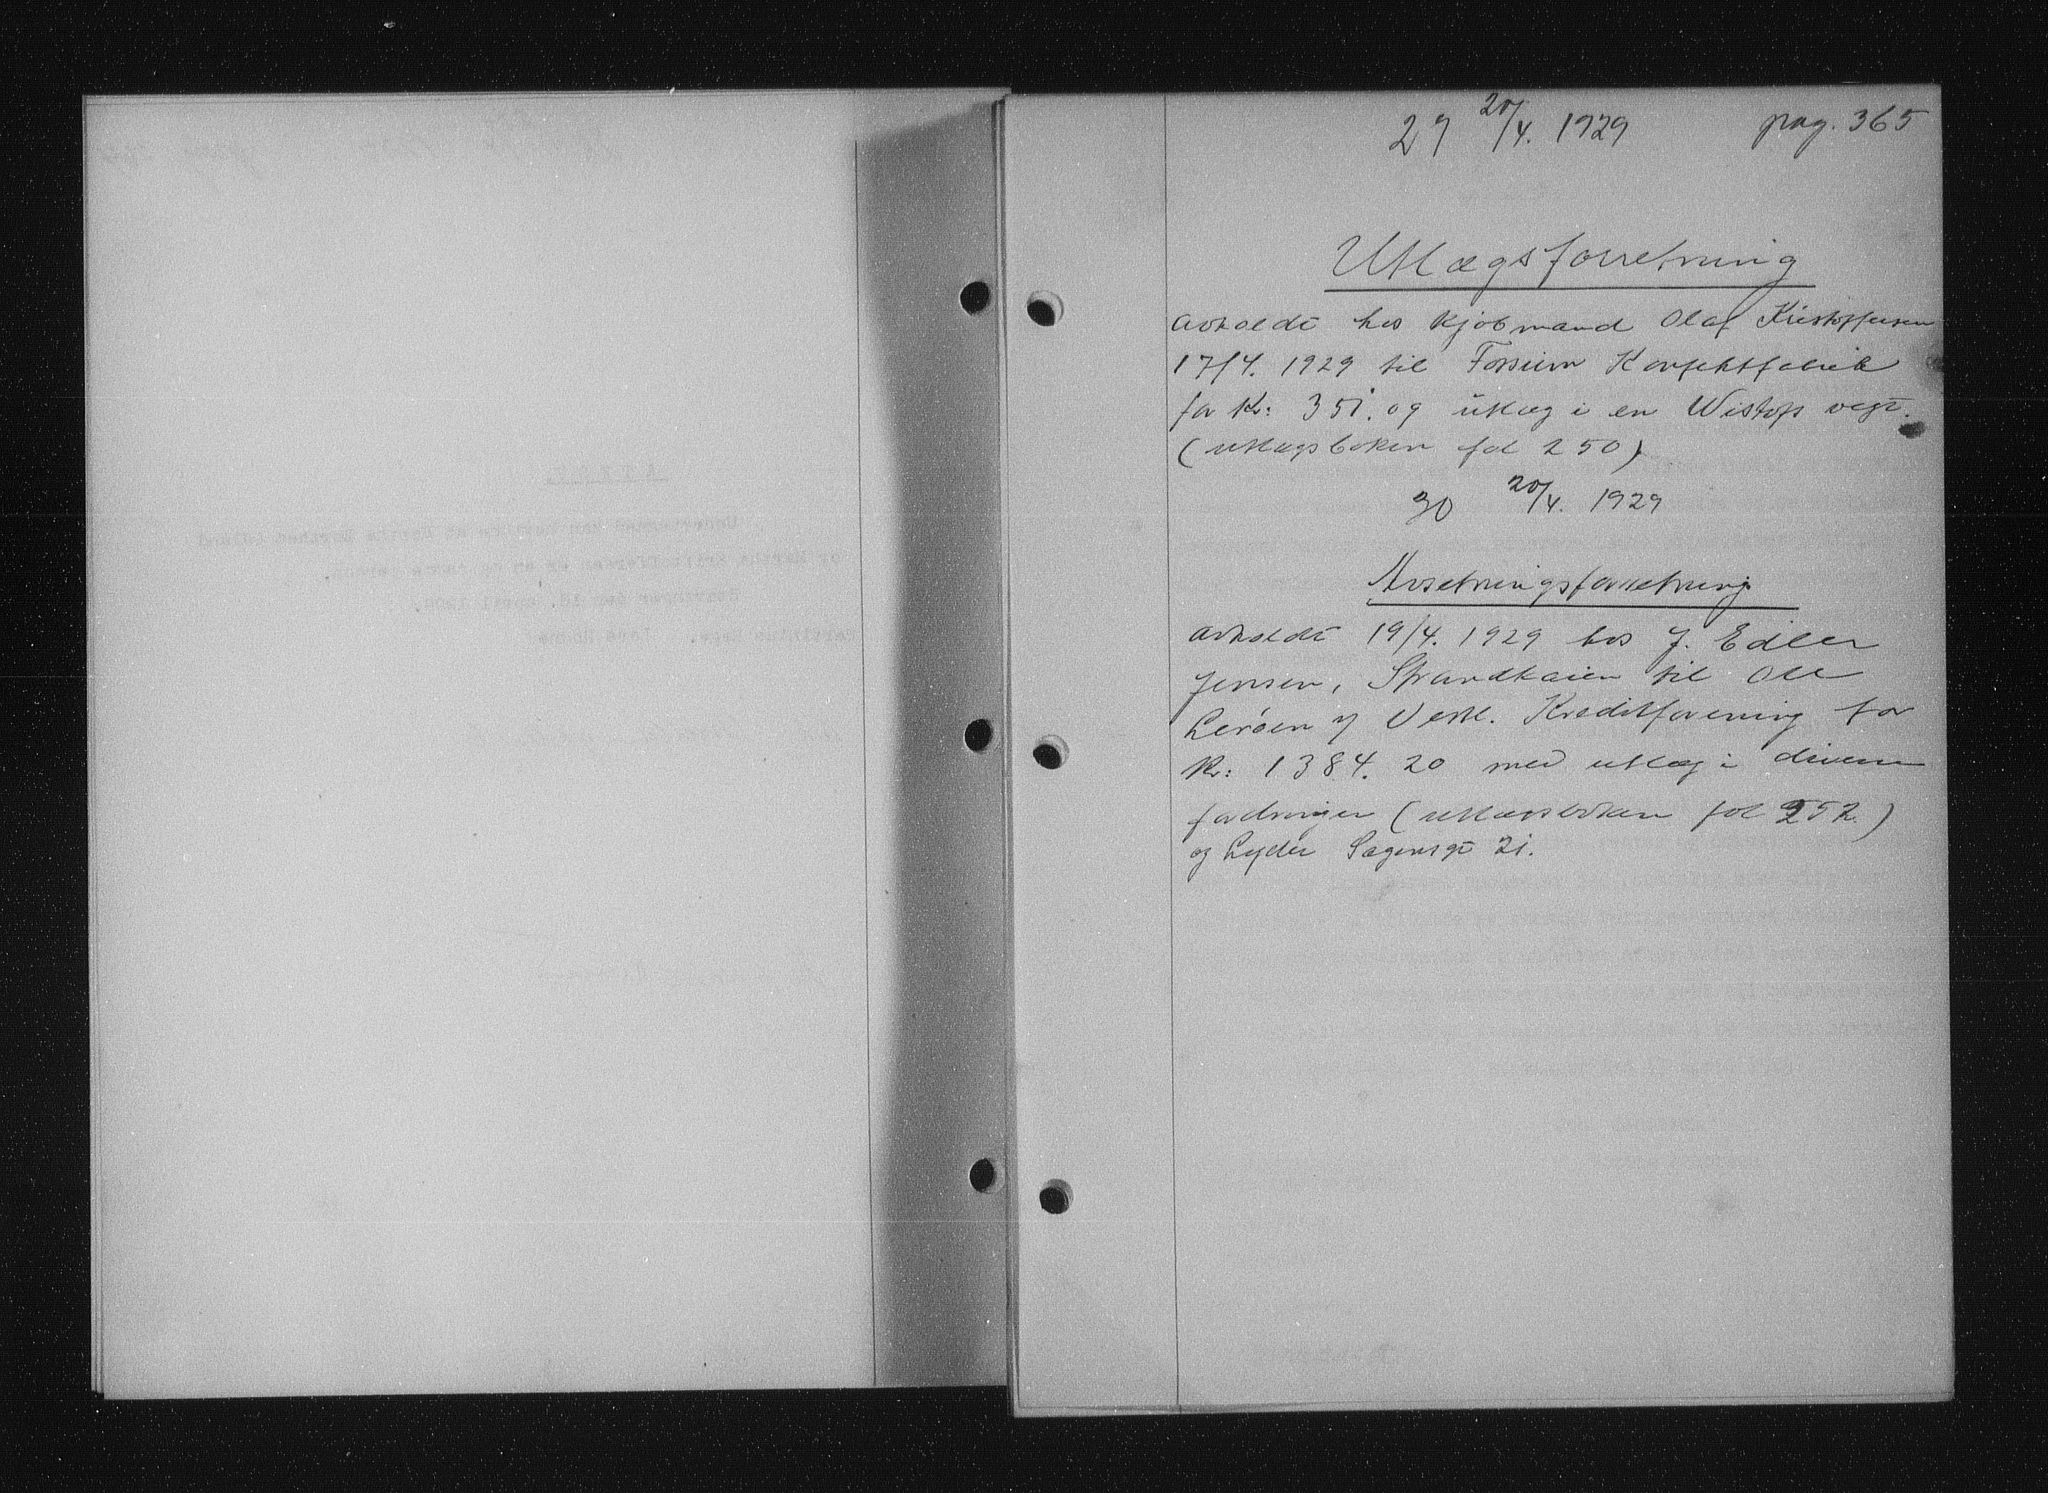 29 20/4. 1929 pag. 365
Utlægsforretning
avholdt hos kjøbmand Olaf Kristoffersen
17/4. 1929 til Konfektfabrik
for Kr: 351. og utlæg i en vegt.
(utlægsboken fol 250)
30 20/4. 1929
Avsetningsforretning
avholdt 19/4. 1929 hos J. Edler
Jensen, Strandkaien til Ole
Lerøen v/ Vestl. Kreditforening for
kr: 1384.20 med utlæg i diverse
fordringer (utlægsboken fol 252.)
og Lyder Sagensgt 21.